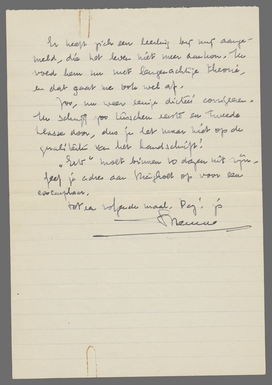 Er heeft zich een leerling bij mij aange-
meld, die het leven niet meer aankon. Ik
voed hem nu met Langenachtige theorie,
en dat gaat me ook wel af.
Zoo, nu weer eenige dictées corrigeeren.
Ik schrijf zoo tusschen eerste en tweede
klasse door, dus je let maar niet op de
van het handschrift!
moet binnen 10 dagen uit zijn.
Geef je adres aan op voor een
exemplaar.
tot een volgende maal. Dag! je